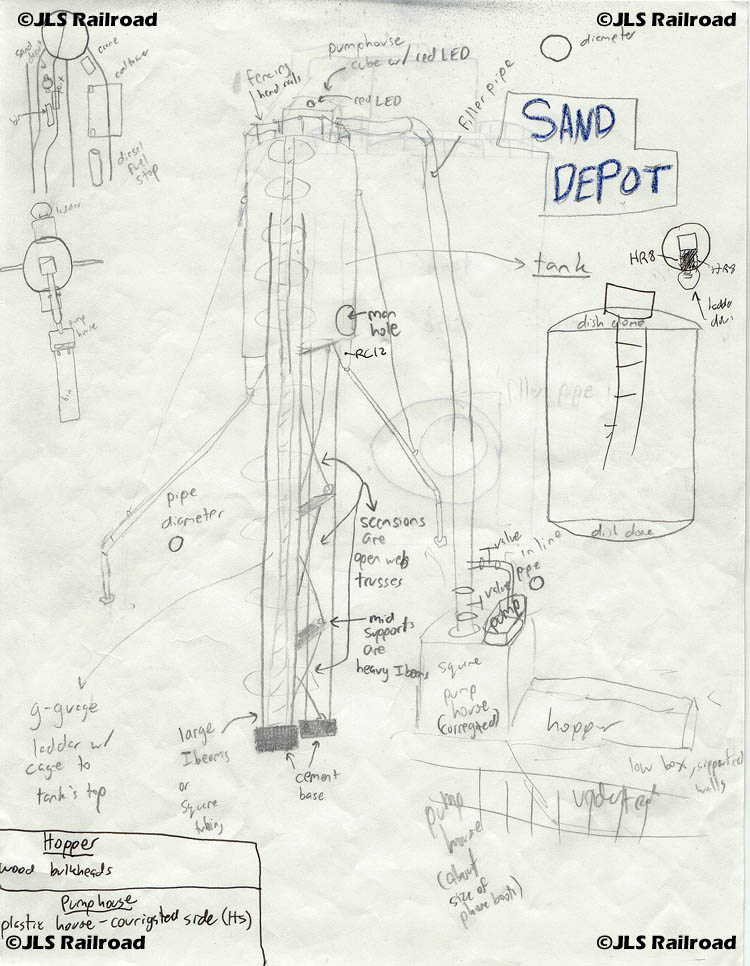 ©JLS Railroad
©JLS Railroad
diameter
pumphouse
cube w/ red LED
red LED
fencing
hand rails
Filler pipe
SAND
DEPOT
sand
crane
coal tower
diesel
fuel
stop
ladder
pump
house
bin
HR8
HR8
tank
man
hole
RC12
dish dome
dish dome
pipe
diameter
scensions
are
open web
trusses
valve
inline
pipe
valve
pump
mid
supports
are
heavy Ibeams
square
pump
house
(corregated)
hopper
low box, supported
walls
g-guage
laddar w/
cage to
tank's top
large
Ibeams
or
square
tubing
cement
base
pump
house
(about
size of
phone booth)
Hopper
wood bulkheads
Pumphouse
plastic house - courigated side (Hs)
©JLS Railroad
©JLS Railroad